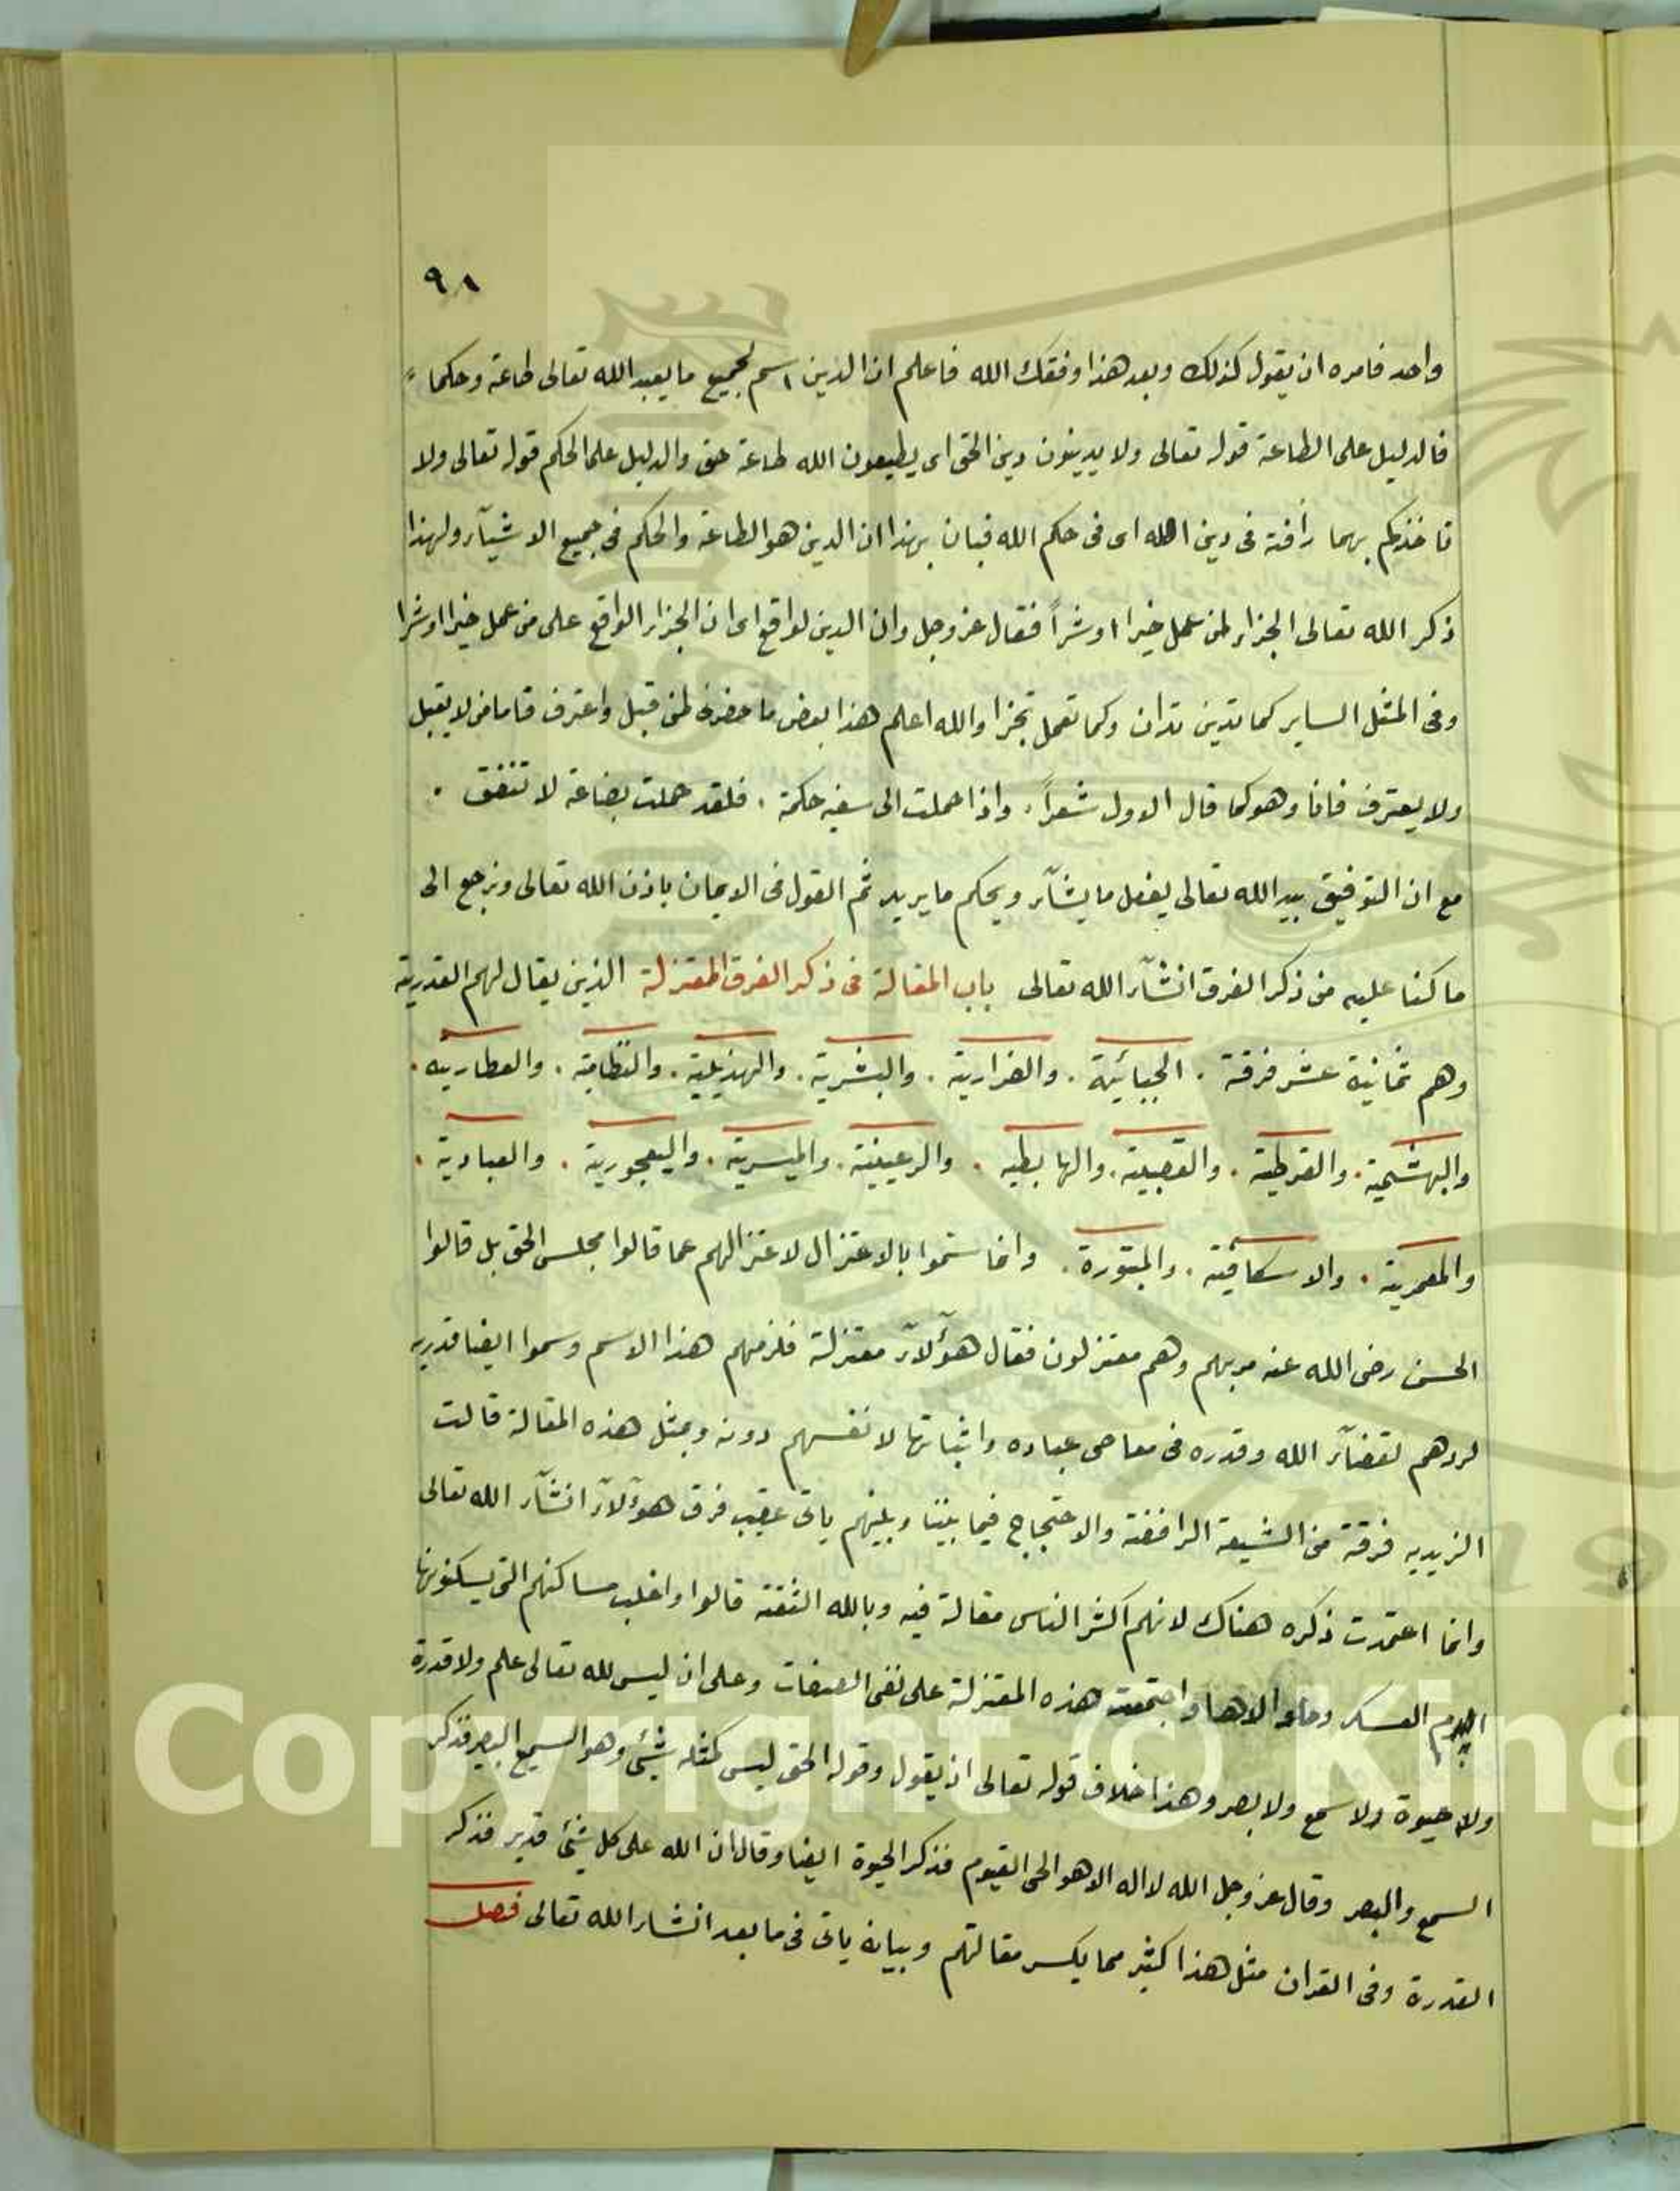 ٩٨
واحد فامره ان يقول كذلك وبعد هذا وفقك الله فاعلم ان الدين اسم لجميع ما يعبد الله تعالى طاعة وحكما
فالدليل على الطاعة قوله تعالى ولا يدينون دين الحق اى يطيعون الله طاعة حق والدليل على الحكم قوله تعالى ولا
تاخذكم بهما رأفة فى دين الله اى فى حكم الله فبان بهذا ان الدين هو الطاعة والحكم فى جميع الاشيآء ولهذا
ذكر الله تعالى الجزاء لمن عمل خيرا اوشراً فقال عز وجل وان الدين لواقع اى ان الجزاء الواقع على من عمل خيرا اوشرا
وفى المثل الساير كما تدين تدان وكما تعمل تجزا والله اعلم هذا بعض ما حضرنى لمن قبل واعترف فاما من لا يقبل
ولا يعترف فانا وهو كما قال الاول شعراً. واذا حملت الى سفيه حكمة . فلقد حملت بضاعة لا تنفق .
مع ان التوفيق بيد الله تعالى يفعل ما يشآء ويحكم ما يريد ثم القول فى الايمان باذن الله تعالى ونرجع الى
ما كنا عليه من ذكر الفرق انشآء الله تعالى باب المقالة فى ذكر الفرق المعتزلة الذين يقال لهم القدرية
وهم ثمانية عشر فرقة . الجبائية . والضرارية . والبشرية . والهذيلية . والنظامية . والعطاريه .
والبهشمية . والقرطية . والقصبية . والهابطيه . والرعينية . والميسرية . واليعجورية . والعبادية .
والمعمرية . والاسكافية . والمبتورة . وانما سموا بالاعتزال لاعتزالهم عما قالوا مجلس الحق بل قالوا
الحسن رضى الله عنه مر بهم وهم معتزلون فقال هؤلآء معتزلة فلزمهم هذا الاسم وسموا ايضا قدريه
لردهم لقضآء الله وقدره فى معاصى عباده واثباتها لانفسهم دونه وبمثل هذه المقالة قالت
الزيديه فرقة من الشيعة الرافضة والاحتجاج فيما بيننا وبينهم ياتى عقيب فرق هؤلآء انشآء الله تعالى
وانما اعتمدت ذكره هناك لانهم اكثر الناس مقالة فيه وبالله الثقة قالوا واغلب مساكنهم التى يسكنونها
اليوم العسكر والاهوا واجتمعت هذه المعتزلة على نفى الصفات وعلى ان ليس لله تعالى علم ولا قدرة
ولا حيوة ولا سمع ولا بصر وهذا خلاف قوله تعالى اذ يقول وقوله الحق ليس كمثله شئى وهو السميع البصير فذكر
السمع والبصر وقال عز وجل الله لا اله الا هو الحى القيوم فذكر الحيوة ايضا وقال ان الله على كل شئى قدير فذكر
القدرة وفى القران مثل هذا كثير مما يكسر مقالتهم وبيانه ياتى فى ما بعد انشاء الله تعالى فصل
Copyright © King